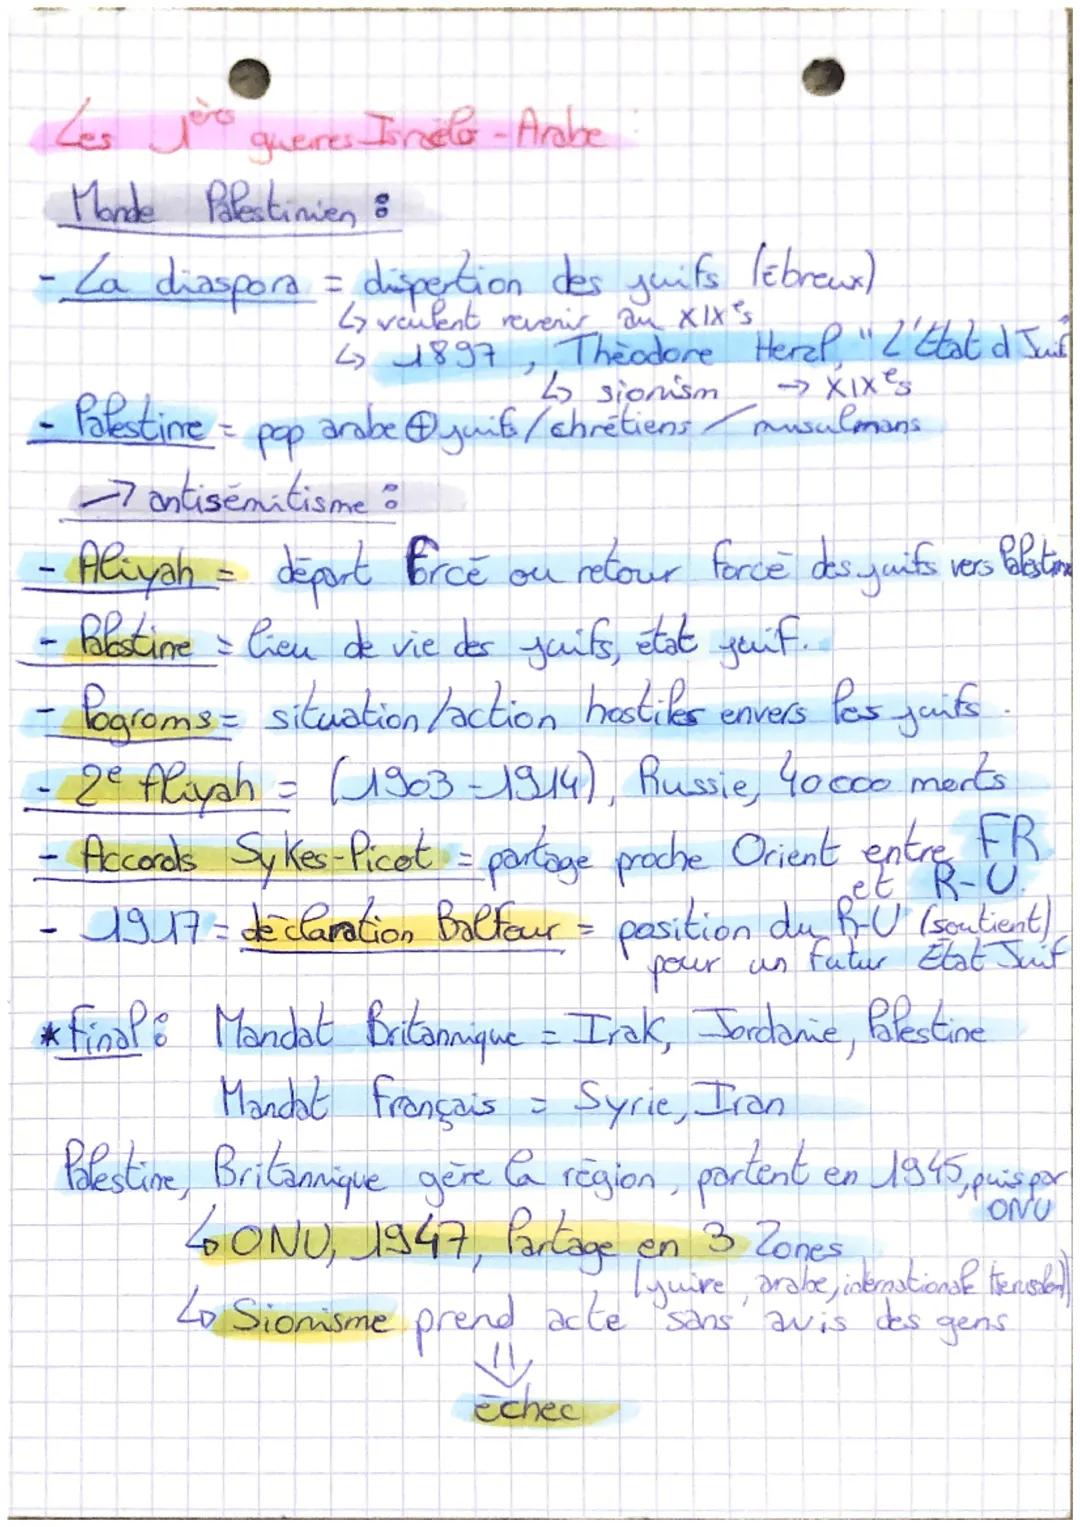 Les 1ères guerres Israélo-Arabe :
Monde Palestinien :
- La diaspora = dispertion des juifs (ébreux)
↳ veulent revenir au XIXe s
↳ 1897, Théodore Herzl, "L'État d Juif
↳ sionism → XIXe s
- Palestine = pop arabe ⊕ juifs/chrétiens/musulmans
→ antisémitisme :
- Aliyah = départ forcé ou retour forcé des juifs vers Palestine
- Palestine = lieu de vie des juifs, état juif.
- Pogroms = situation/action hostiles envers les juifs.
- 2e Aliyah = (1903-1914), Russie, 40 000 morts
- Accords Sykes-Picot = partage proche Orient entre FR
et R-U.
- 1917 = déclaration Balfour = position du R-U (soutient)
pour un futur État Juif
* Final : Mandat Britannique = Irak, Jordanie, Palestine
Mandat Français = Syrie, Iran
Palestine, Britannique gère la région, partent en 1945, puis par
ONU
↳ ONU, 1947, Partage en 3 Zones
(juire, arabe, internationale Jérusalem)
↳ Sionisme prend acte sans avis des gens
⇓
échec